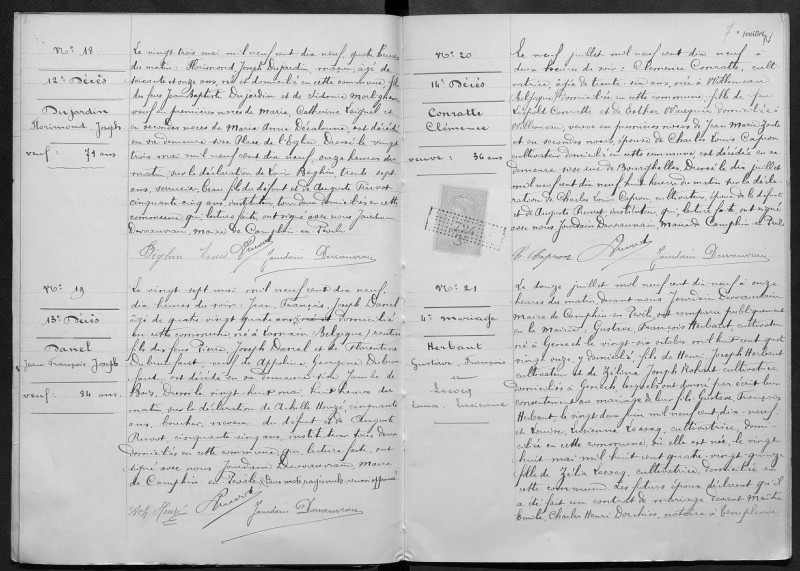 N° 18
12e Décès
Dujardin
Florimond, Joseph
veuf : 71 ans
Le vingt trois mai mil neuf cent dix neuf, quatre heures
du matin : Florimond, Joseph Dujardin, maçon, âgé de
soixante et onze ans, né et domicilié en cette commune, fils
des feus Jean Baptiste Dujardin et de Sidonie
veuf en premières noces de Marie, Catherine
en secondes noces de Marie Anne est décédé
en sa demeure sise Place de l'Eglise. Dressé le vingt
trois mai mil neuf cent dix neuf, onze heures du
matin, sur la déclaration de Louis Béghin, trente sept
ans, beau fils du défunt et de Auguste Ruvot
cinquante cinq ans, instituteur, tous deux domiciliés en cette
commune qui, lecture faite ont signé avec nous Jourdain
Duvauvrau, maire de Camphin en Pévèle
Béghin Louis Ruvot Jourdain Duvauvrau
N° 19
13e Décès
Danel
Jean François Joseph
veuf : 84 ans.
Le vingt sept mai mil neuf cent dix neuf,
dix heures du soir : Jean, François, Joseph Danel
âgé de quatre vingt quatre ans domicilié
en cette commune, né à (Belgique), rentier
fils des feus Pierre, Joseph Danel et de Florentine
veuf de Appoline, Georgine
est décédé en sa demeure sise Jambe de
Bois. Dressé le vingt huit mai, huit heures du
matin sur la déclaration de Achille Honzé, cinquante
ans, boucher, neveu du défunt et de Auguste
Ruvot, cinquante cinq ans, instituteur tous deux
domiciliés en cette commune, qui, lecture faite, ont
signé avec nous Jourdain Duvauvrau maire
de Camphin en Pévèle
Ach Honzé Ruvot Jourdain Duvauvrau
7e
N° 20
14e Décès
Conratte
Clémence
veuve : 36 ans
Le neuf juillet mil neuf cent dix neuf à
deux heures du soir : Clémence Conratte, cult
ivatrice, âgée de trente six ans, née à Willemeau
Belgique, domiciliée en cette commune, fille de feu
Léopold Conratte et de Esther domiciliée à
Willemeau, veuve en premières noces de Jean Marie
et en secondes noces, épouse de Charles Louis Capron
cultivateur domicilié en cette commune est décédée en sa
demeure sise rue de Bourghelles. Dressé le dix juillet
mil neuf cent dix neuf huit heures du matin sur la décla
ration de Charles Louis Capron, cultivateur, époux de la défunte
et de Auguste Ruvot, instituteur, qui, lecture faite, ont signé
avec nous Jourdain Duvauvrau Maire de Camphin en Pévèle
C. Capron Ruvot Jourdain Duvauvrau
N° 21
4e Mariage
Herbaut
Gustave, François
et
Lecocq
Louise, Lucienne
Le douze juillet mil neuf cent dix neuf à onze
heures du matin devant nous Jourdain Duvauvrau
Maire de Camphin en Pévèle, ont comparu publiquement
en la mairie, Gustave, François Herbaut, cultivateur
né à Genech le vingt six octobre mil huit cent quatre
vingt onze, y domicilié, fils de Henri, Joseph Herbaut
cultivateur et de Zélina Joseph cultivatrice
domiciliés à Genech, lesquels ont donné par écrit leur
consentement au mariage de leur fils Gustave François
Herbaut, le vingt deux juin mil neuf cent dix-neuf,
et Louise, Lucienne Lecocq, cultivatrice, domi-
ciliée en cette commune, où elle est née, le vingt
huit mai mil huit cent quatre-vingt-quinze
fille de Zélie Lecocq, cultivatrice, domiciliée en
cette commune. Les futurs époux déclarent qu'il
a été fait un contrat de mariage devant Maître
Emile, Charles Henri notaire à Templeuve